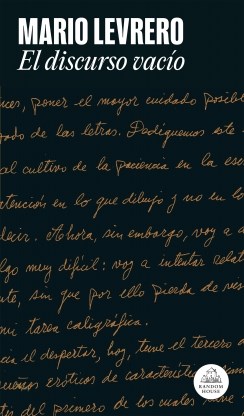 MARIO LEVRERO
El discurso vacío
nces, poner el mayor cuidado posible
bado de las letras. Dediquemos este
al cultivo de la paciencia en la esc
atención en lo que dibujo y no en lo
decir. Ahora, sin embargo, voy a a
lgo muy difícil: voy a intentar relat
te, sin que por ello pierda de vis
mi tarea caligráfica.
al despertar, hoy, tuve el tercero
ueños eróticos de característic
primero de los cuales
RANDOM
HOUSE